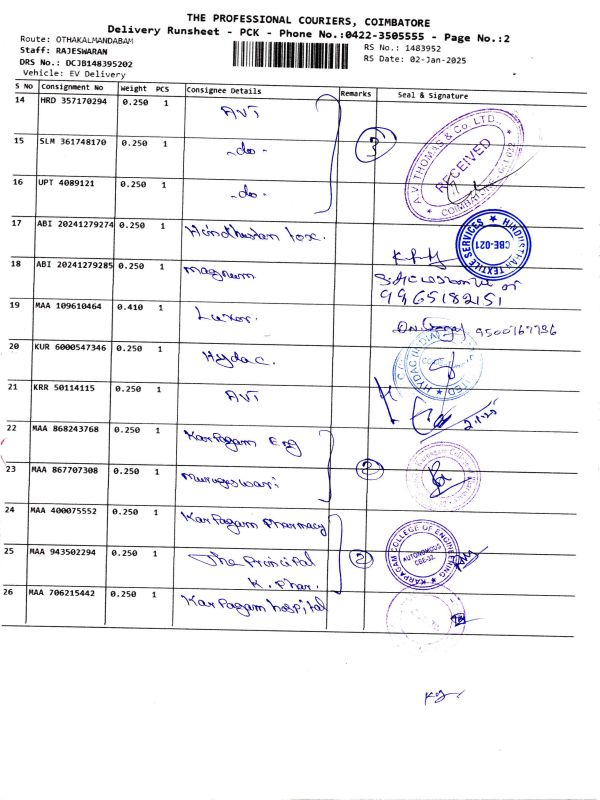 THE PROFESSIONAL COURIERS, COIMBATORE
Delivery Runsheet - PCK - Phone No.:0422-3505555 - Page No.:2
Route: OTHAKALMANDABAM
RS No.: 1483952
Staff: RAJESWARAN
RS Date: 02-Jan-2025
DRS No.: DCJB148395202
Vehicle: EV Delivery
S No Consignment No Weight PCS Consignee Details Remarks Seal & Signature
14 HRD 357170294 0.250 1 AVT
15 SLM 361748170 0.250 1 -do- 3
A.V. THOMAS & Co LTD., RECEIVED COIMBATORE
16 UPT 4089121 0.250 1 -do-
17 ABI 20241279274 0.250 1 Hindhustan Tex.
HINDUSTHAN TEXTILE SERVICES CBE-021
18 ABI 20241279285 0.250 1 Magnum
9965182151
19 MAA 109610464 0.410 1 Luxor. 9500167796
20 KUR 6000547346 0.250 1 Hydac. HYDAC (INDIA)
21 KRR 50114115 0.250 1 AVT
2.1.25
22 MAA 868243768 0.250 1 Karpagam Eng
23 MAA 867707308 0.250 1 Murugeswari 2
24 MAA 400075552 0.250 1 Karpagam Pharmacy
KARPAGAM COLLEGE OF ENGINEERING AUTONOMOUS CBE-32.
25 MAA 943502294 0.250 1 The Principal 2
K. Phar.
26 MAA 706215442 0.250 1 Karpagam hospital